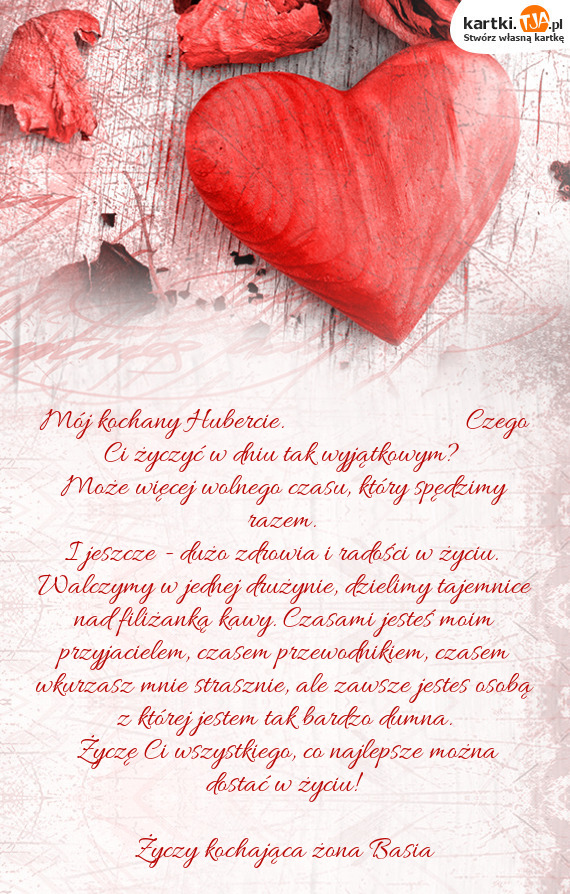 kartki.TJA.pl
Stwórz własną kartkę
Mój kochany Hubercie. Czego
Ci życzyć w dniu tak wyjątkowym?
Może więcej wolnego czasu, który spędzimy
razem.
I jeszcze - dużo zdrowia i radości w życiu.
Walczymy w jednej drużynie, dzielimy tajemnice
nad filiżanką kawy. Czasami jesteś moim
przyjacielem, czasem przewodnikiem, czasem
wkurzasz mnie strasznie, ale zawsze jestes osobą
z której jestem tak bardzo dumna.
Życzę Ci wszystkiego, co najlepsze można
dostać w życiu!
Życzy kochająca żona Basia